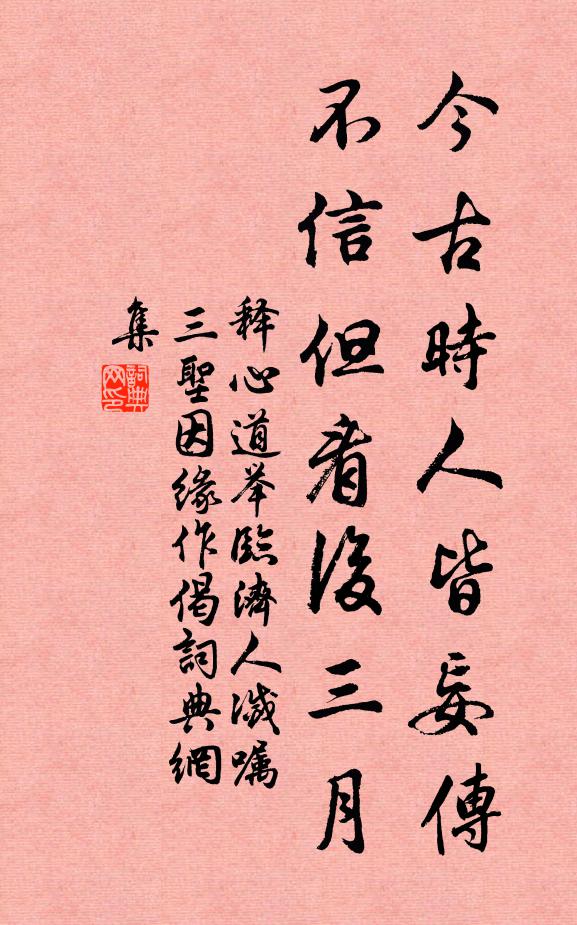 今古時人皆妄傳
不信但看後三月
释心道举臨濟人滅嘱
三聖因緣作偈詞典網
集
詞典
网印